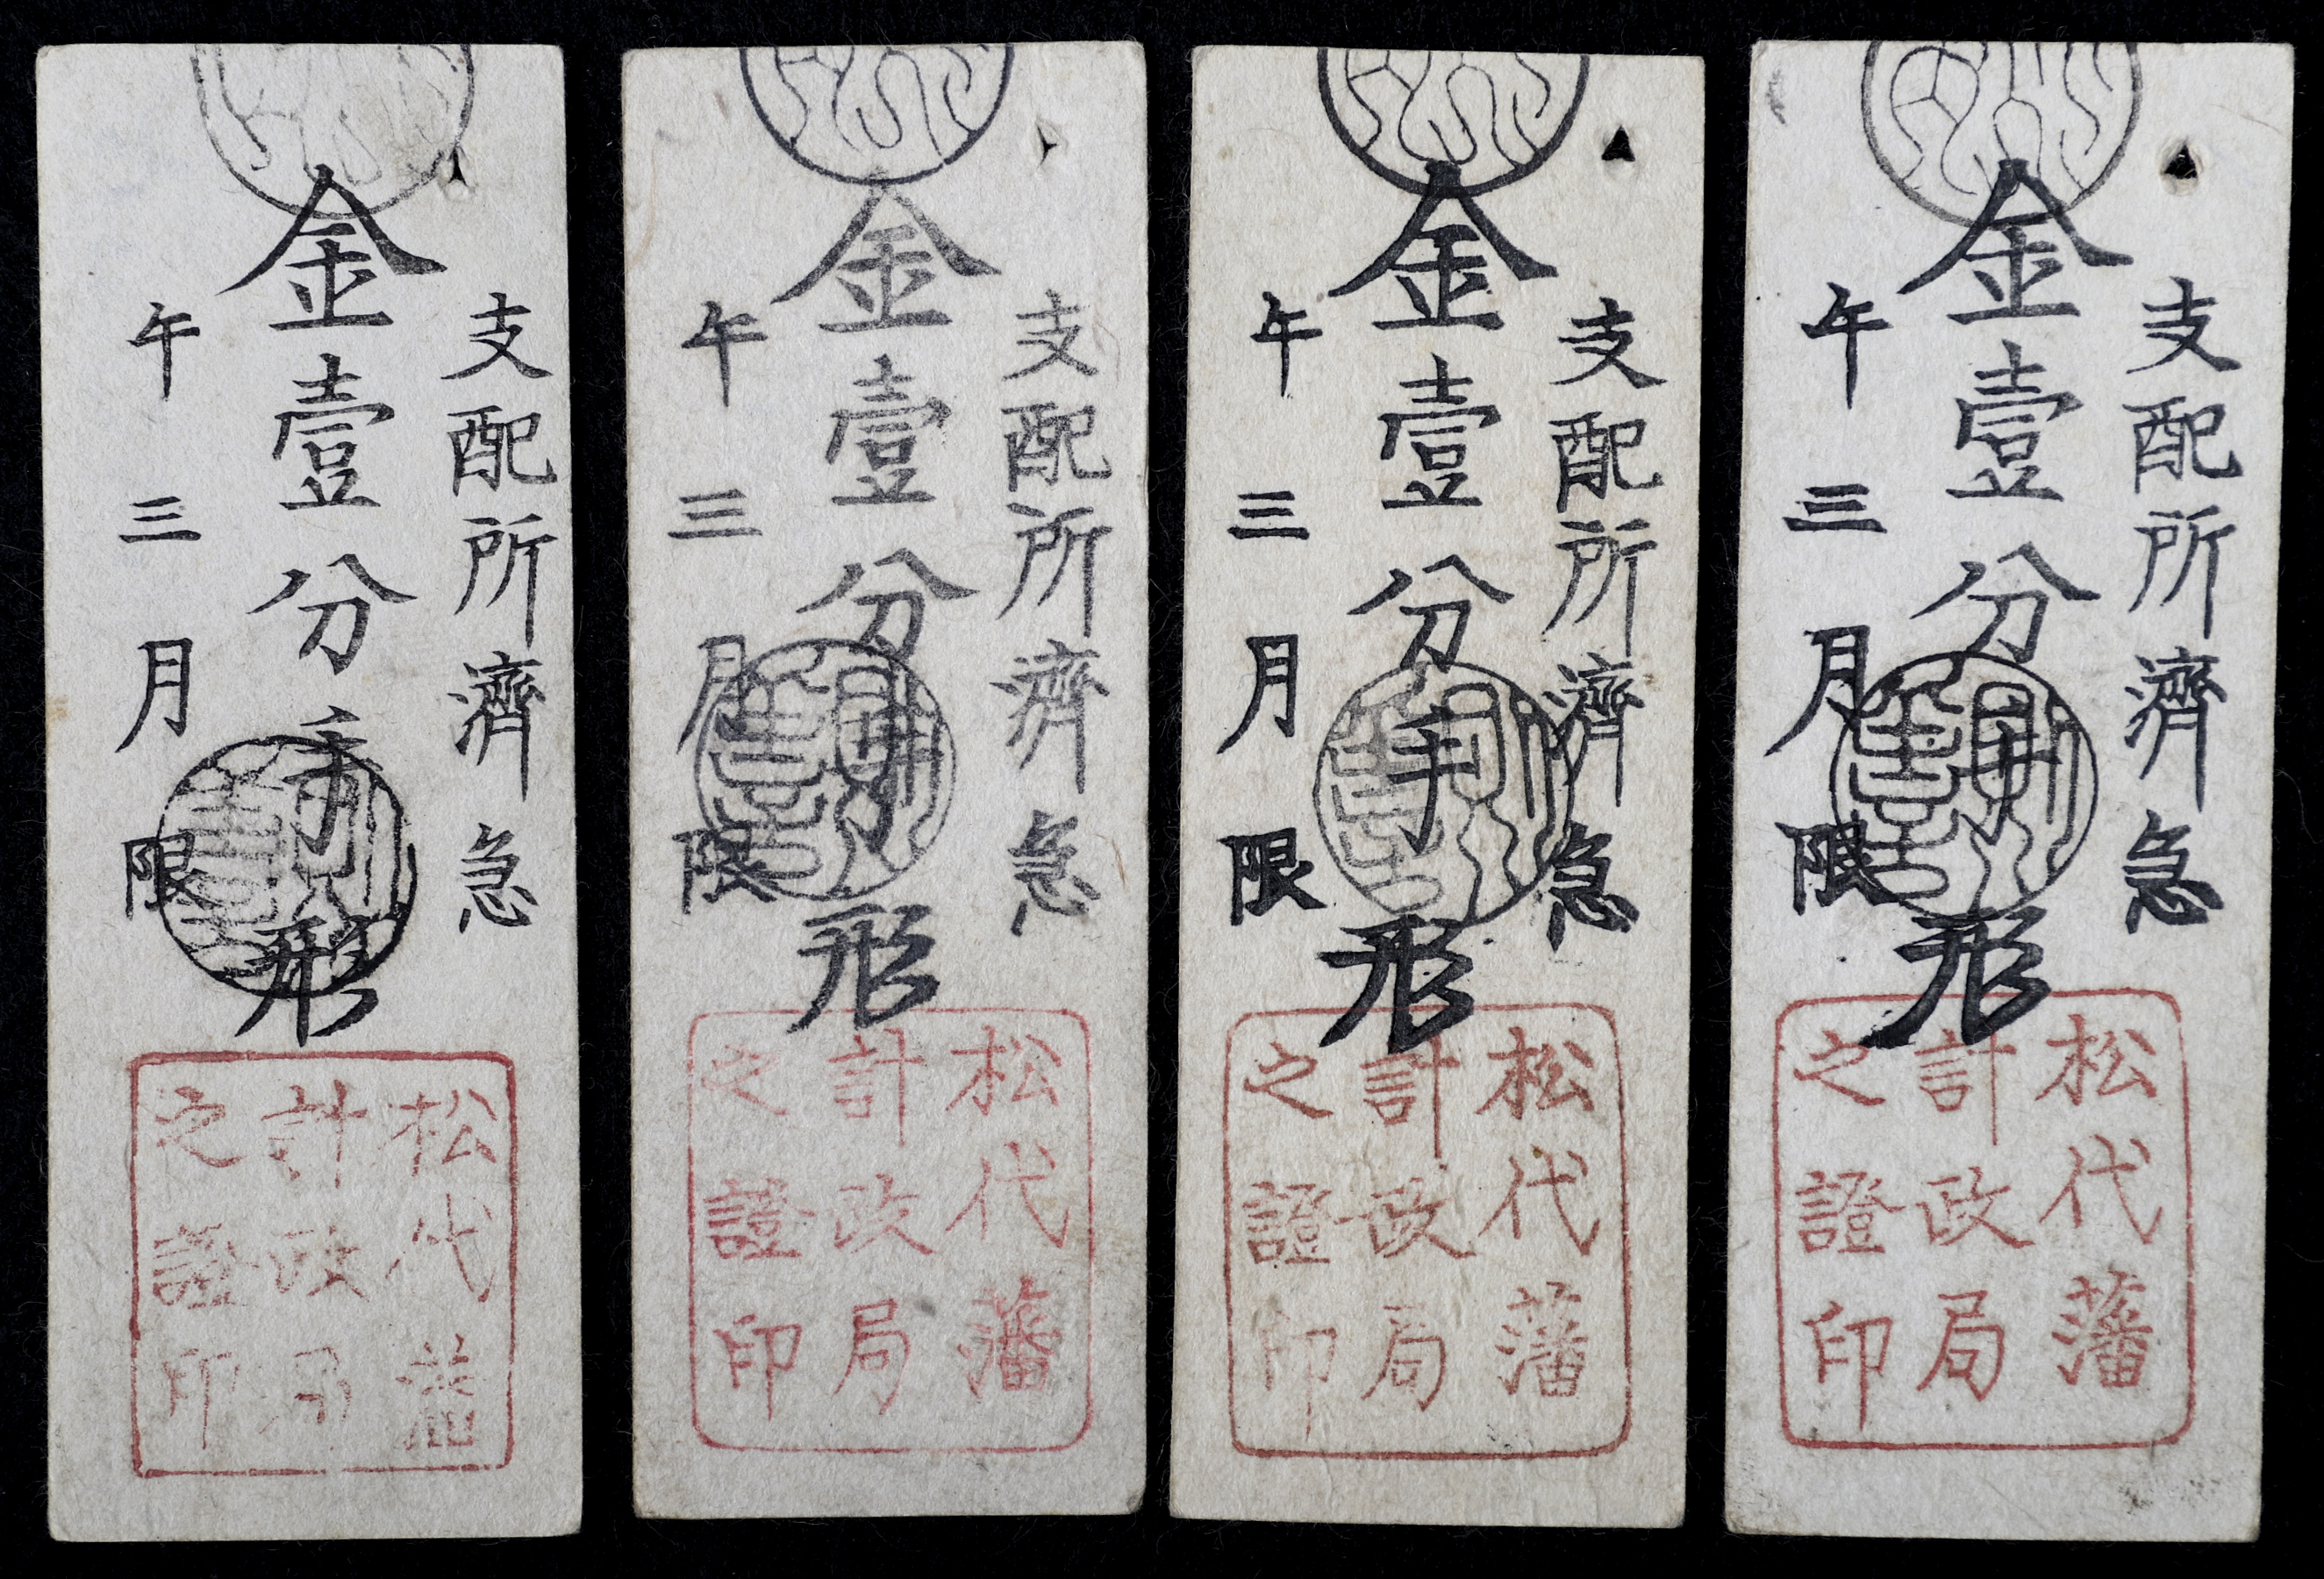 支配所濟急
金壹分手形
午三月限
松代藩
計政局
之證印
支配所濟急
金壹分手形
午三月限
松代藩
計政局
之證印
支配所濟急
金壹分手形
午三月限
松代藩
計政局
之證印
支配所濟急
金壹分手形
午三月限
松代藩
計政局
之證印